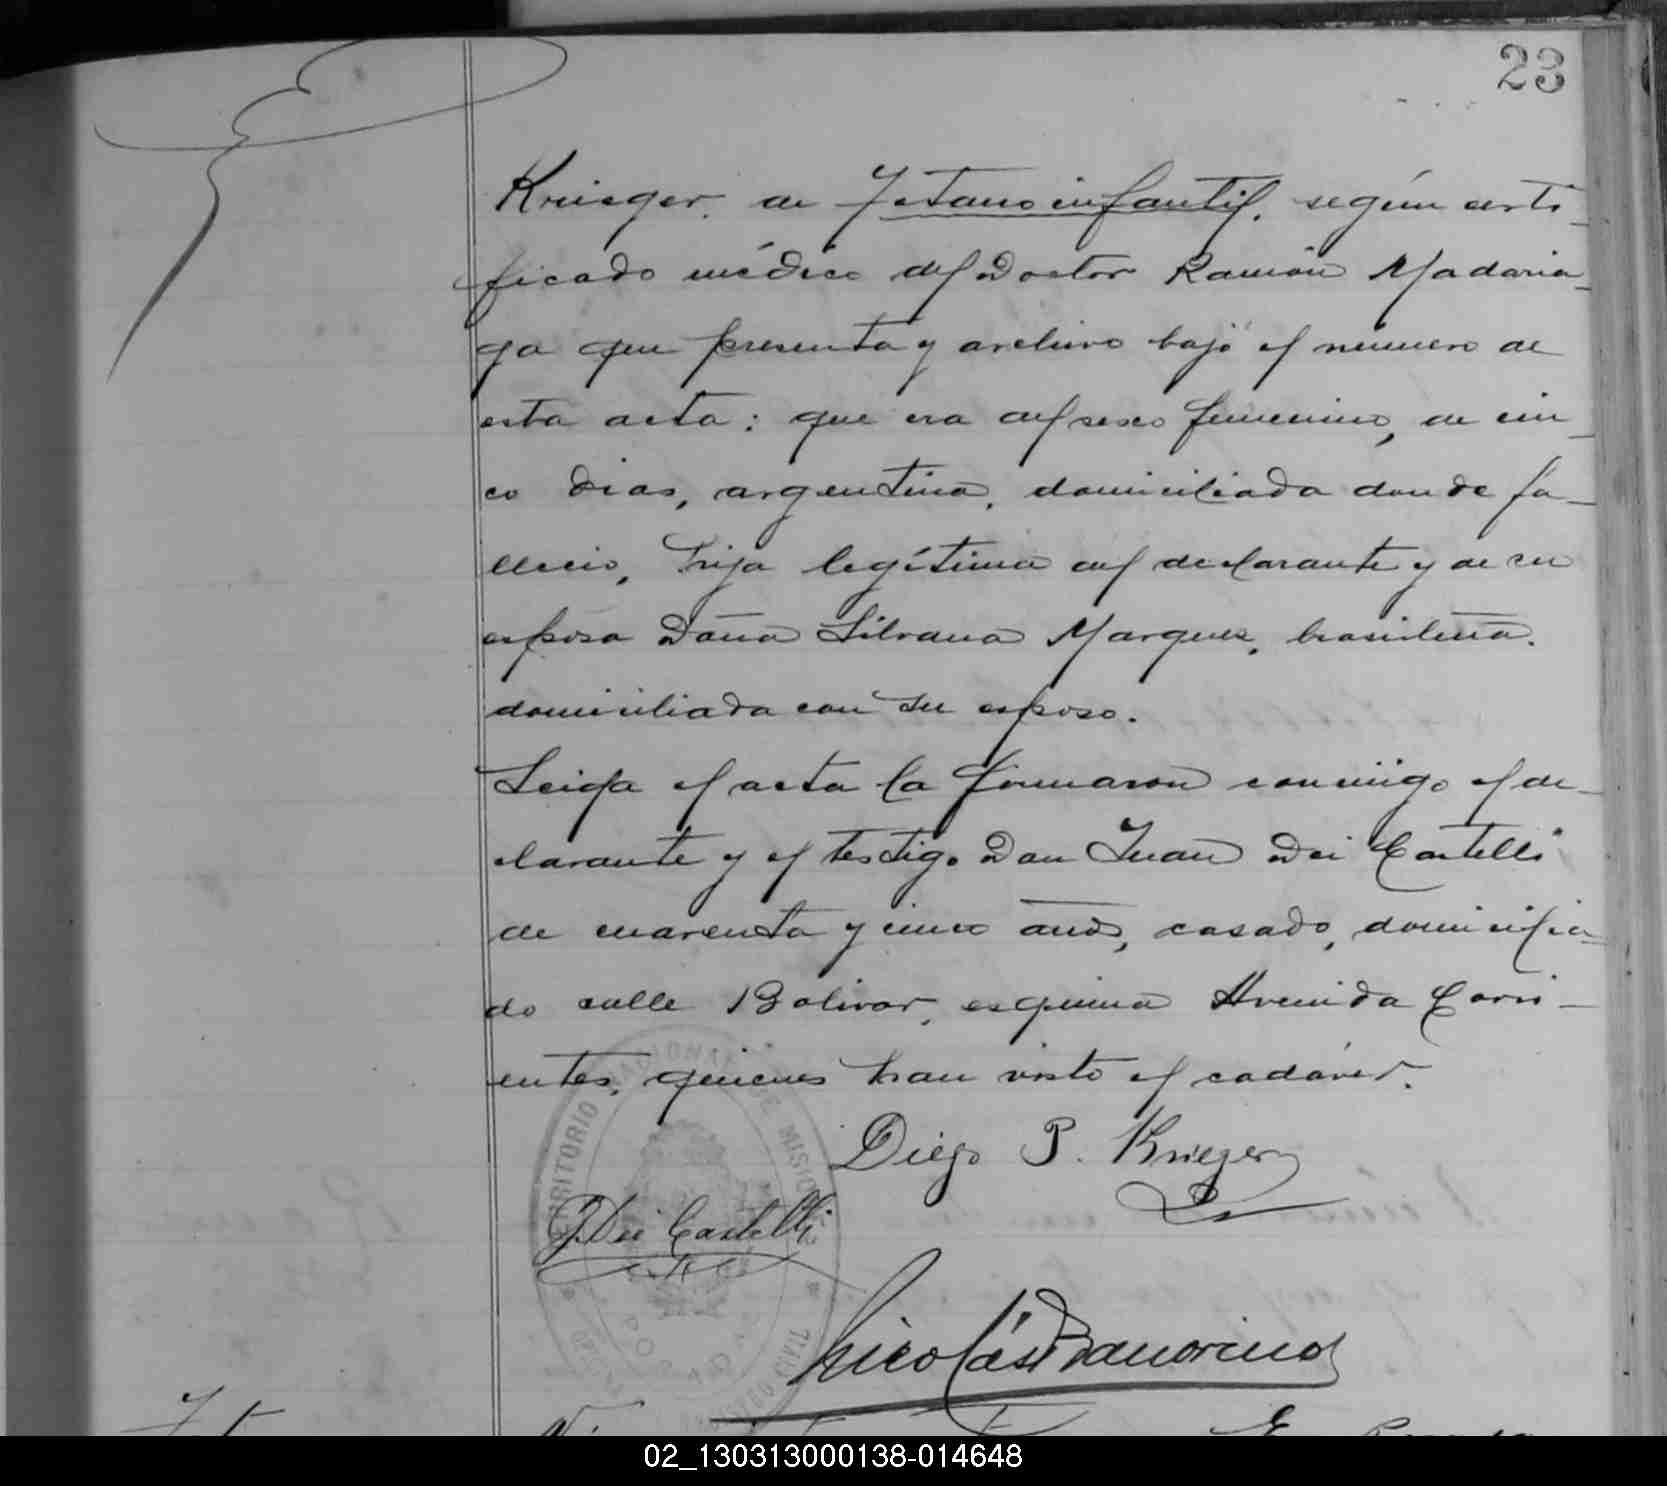 23
Krieger, de Tetano infantil, según certi-
ficado médico del Doctor Ramón Madaria-
ga que presenta y archivo bajo el número de
esta acta: que era del sexo femenino, de cin-
co dias, argentina, domiciliada donde fa-
lleció, hija legítima del declarante y de su
esposa Doña Silvana Marquez, brasileña,
domiciliada con su esposo.
Leida el acta la firmaron conmigo el de-
clarante y el testigo Don Juan Dei Castelli
de cuarenta y cinco años, casado, domicilia-
do calle Bolivar, esquina Avenida Corri-
entes, quienes han visto el cadáver.
Diego P. Krieger
J. Dei Castelli
TERRITORIO NACIONAL DE MISIONES
REGISTRO CIVIL
POSADAS
Nicolás
02_130313000138-014648